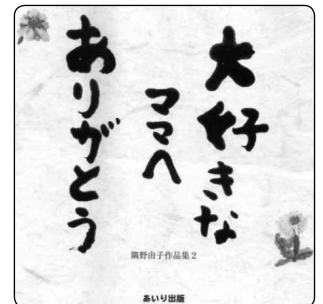 大好きな
ママへ
ありがとう
隅野由子作品集2
あいり出版